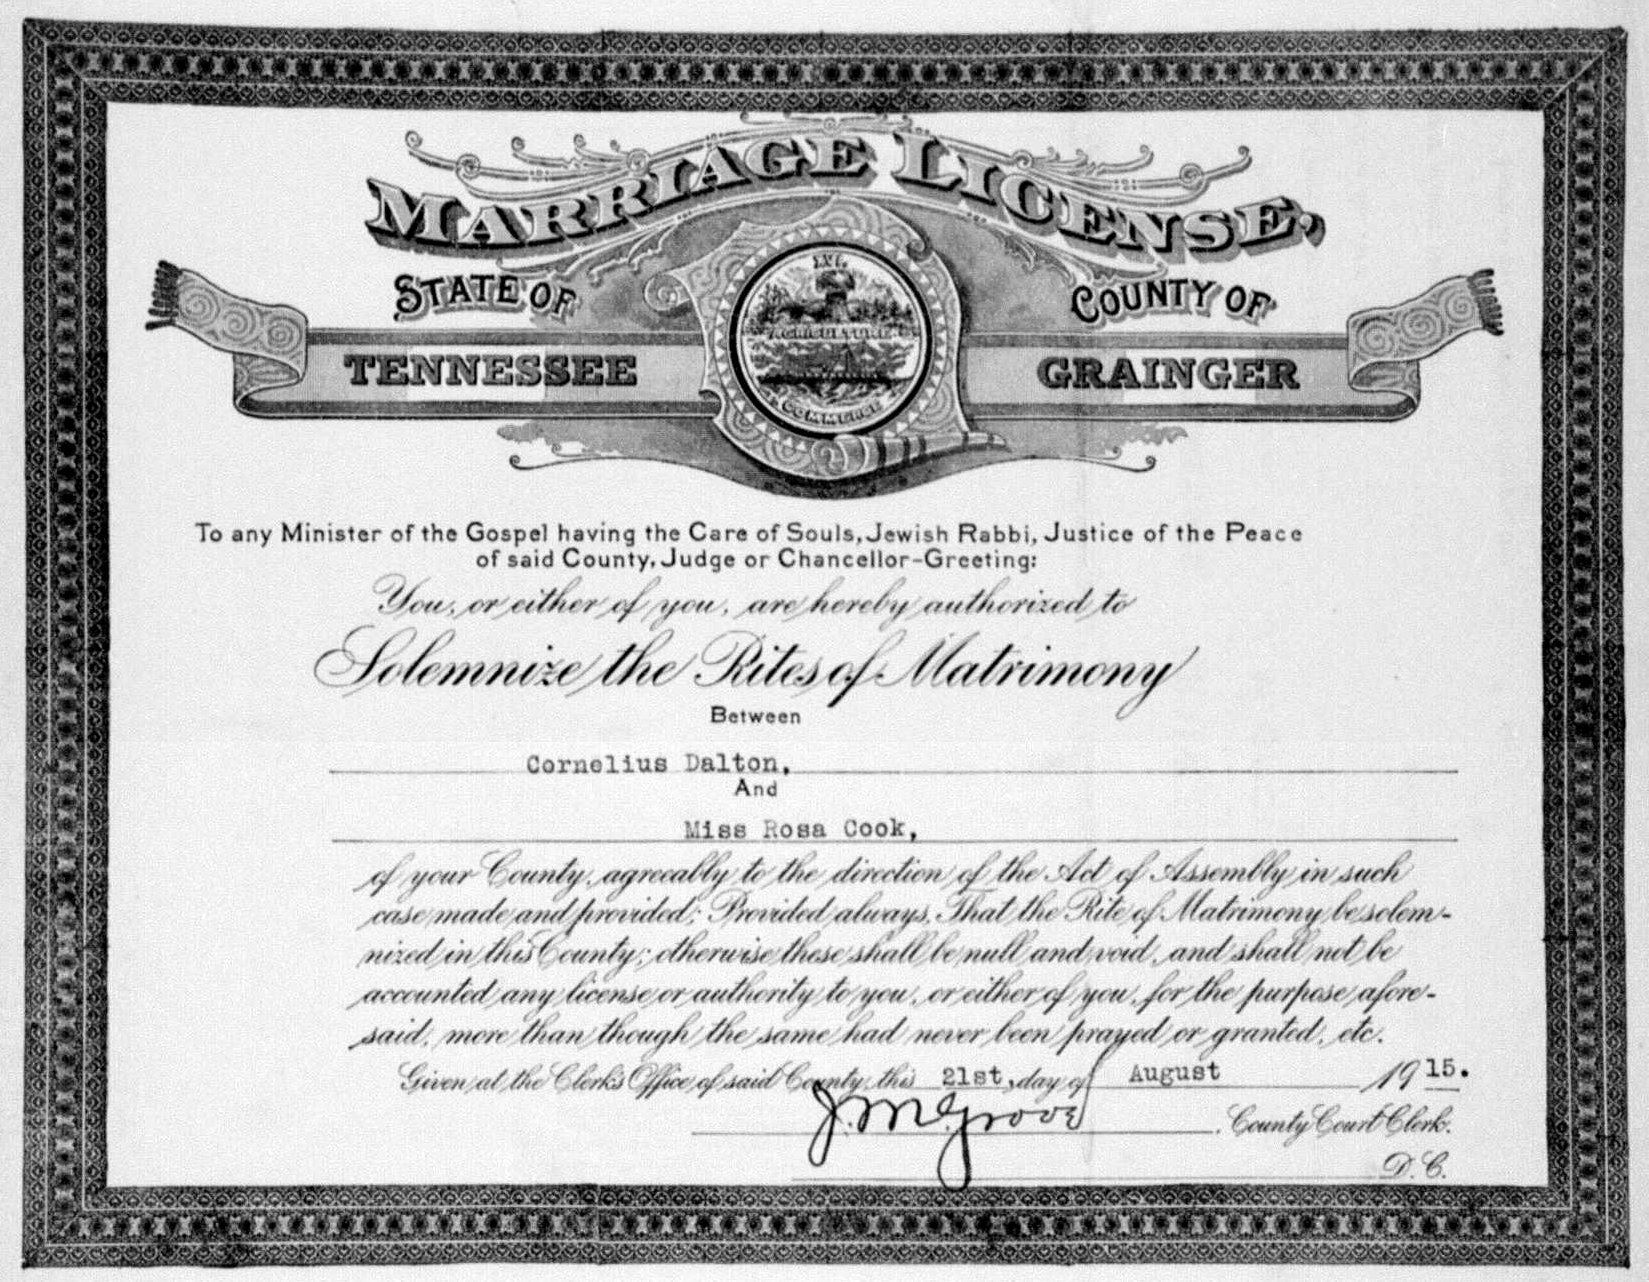 MARRIAGE LICENSE,
STATE OF
COUNTY OF
TENNESSEE
GRAINGER
XVI.
AGRICULTURE
COMMERCE
To any Minister of the Gospel having the Care of Souls, Jewish Rabbi, Justice of the Peace
of said County, Judge or Chancellor-Greeting:
You, or either of you, are hereby authorized to
Solemnize the Rites of Matrimony
Between
Cornelius Dalton,
And
Miss Rosa Cook,
of your County, agreeably to the direction of the Act of Assembly in such
case made and provided; Provided always, That the Rite of Matrimony be solem-
nized in this County; otherwise these shall be null and void, and shall not be
accounted any license or authority to you, or either of you, for the purpose afore-
said, more than though the same had never been prayed or granted, etc.
Given at the Clerk's Office of said County, this 21st, day of August 1915.
J. M. Grove County Court Clerk.
D. C.